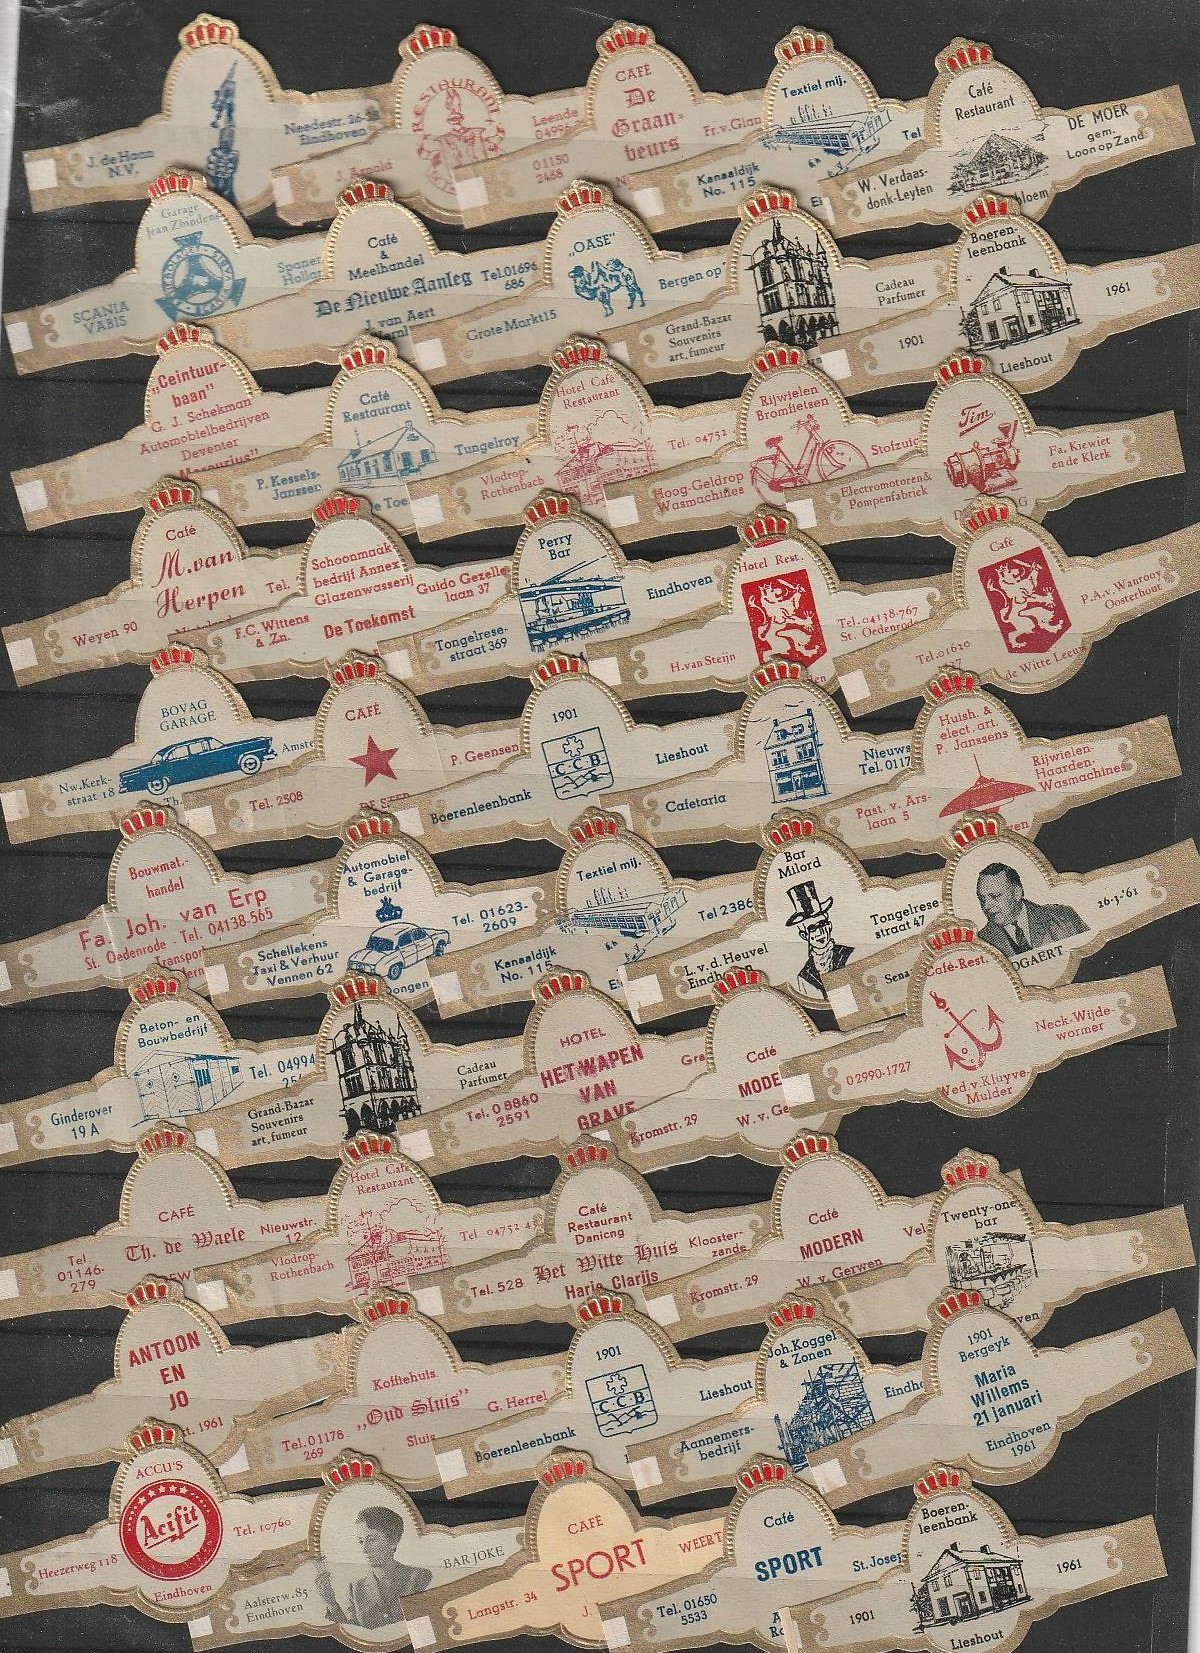 J. de Haan
N.V.
Needestr. 26-28
Eindhoven
RESTAURANT
Leende
CAFÉ
De
Graan-
beurs
01150
2468
Textiel mij.
Kanaaldijk
No. 115
Tel
Café
Restaurant
W. Verdaas-
donk-Leyten
DE MOER
gem.
Loon op Zand
Garage
Jean Zbinden
SCANIA
VABIS
Café
&
Meelhandel
De Nieuwe Aanleg
J. van Aert
Tel.01696
686
„OASE"
Grote Markt 15
Bergen op
Grand-Bazar
Souvenirs
art, fumeur
Cadeau
Parfumer
Boeren-
leenbank
1901
1961
Lieshout
„Ceintuur-
baan"
G. J. Schekman
Automobielbedrijven
Deventer
Café
Restaurant
P. Kessels-
Janssen
Tungelroy
Hotel Café
Restaurant
Vlodrop-
Rothenbach
Tel. 04752
Rijwielen
Bromfietsen
Hoog-Geldrop
Wasmachines
Tim
Electromotoren &
Pompenfabriek
Fa. Kiewiet
en de Klerk
Café
M. van
Herpen
Weyen 90
Tel.
Schoonmaak
bedrijf Annex
Glazenwasserij
F.C. Wittens
& Zn.
De Toekomst
Guido Gezelle
laan 37
Perry
Bar
Tongelrese-
straat 369
Eindhoven
Hotel Rest.
H. van Steijn
Tel. 04138-767
St. Oedenrode
Café
Tel. 01620
de Witte Leeuw
P.A.v. Wanrooy
Oosterhout
BOVAG
GARAGE
Nw. Kerk-
straat 18
CAFÉ
Tel. 2508
P. Geensen
1901
CCB
Boerenleenbank
Lieshout
Cafetaria
Nieuws
Tel. 0117
Huish. &
elect. art.
P. Janssens
Past. v. Ars-
laan 5
Rijwielen-
Haarden-
Wasmachines
Bouwmat.-
handel
Fa. Joh. van Erp
St. Oedenrode - Tel. 04138-565
Automobiel
& Garage-
bedrijf
Schellekens
Taxi & Verhuur
Vennen 62
Tel. 01623-
2609
Dongen
Textiel mij.
Kanaaldijk
No. 115
Tel 2386
Bar
Milord
L. v. d. Heuvel
Eindhoven
Tongelrese-
straat 47
26-3-'61
Beton- en
Bouwbedrijf
Ginderover
19 A
Tel. 04994
Grand-Bazar
Souvenirs
art, fumeur
Cadeau
Parfumer
HOTEL
HET-WAPEN
VAN
GRAVE
Tel. 08860
2591
Café
MODE
Kromstr. 29
W. v. Ge
Café-Rest.
02990-1727
Wed. v. Kluyve-
Mulder
Neck-Wijde-
wormer
CAFÉ
Th. de Waele
Tel
01146-
279
Nieuwstr.
12
Hotel Café
Restaurant
Vlodrop-
Rothenbach
Tel 04752
Café
Restaurant
Danicng
Het Witte Huis
Harie Clarijs
Tel. 528
Klooster-
zande
Café
MODERN
Kromstr. 29
W. v. Gerwen
Vel
Twenty-one
bar
ANTOON
EN
JO
1961
Koffiehuis
„Oud Sluis"
Tel. 01178
269
G. Herrel
Sluis
1901
CCB
Boerenleenbank
Lieshout
Joh. Koggel
& Zonen
Aannemers-
bedrijf
Eindho
1901
Bergeyk
Maria
Willems
21 januari
Eindhoven
1961
ACCU'S
Acifit
Heezerweg 118
Tel. 10760
Eindhoven
Aalsterw. 85
Eindhoven
BAR JOKE
CAFÉ
SPORT
Langstr. 34
WEERT
J.
Café
SPORT
Tel. 01650
5533
St. Josep
Boeren-
leenbank
1901
1961
Lieshout